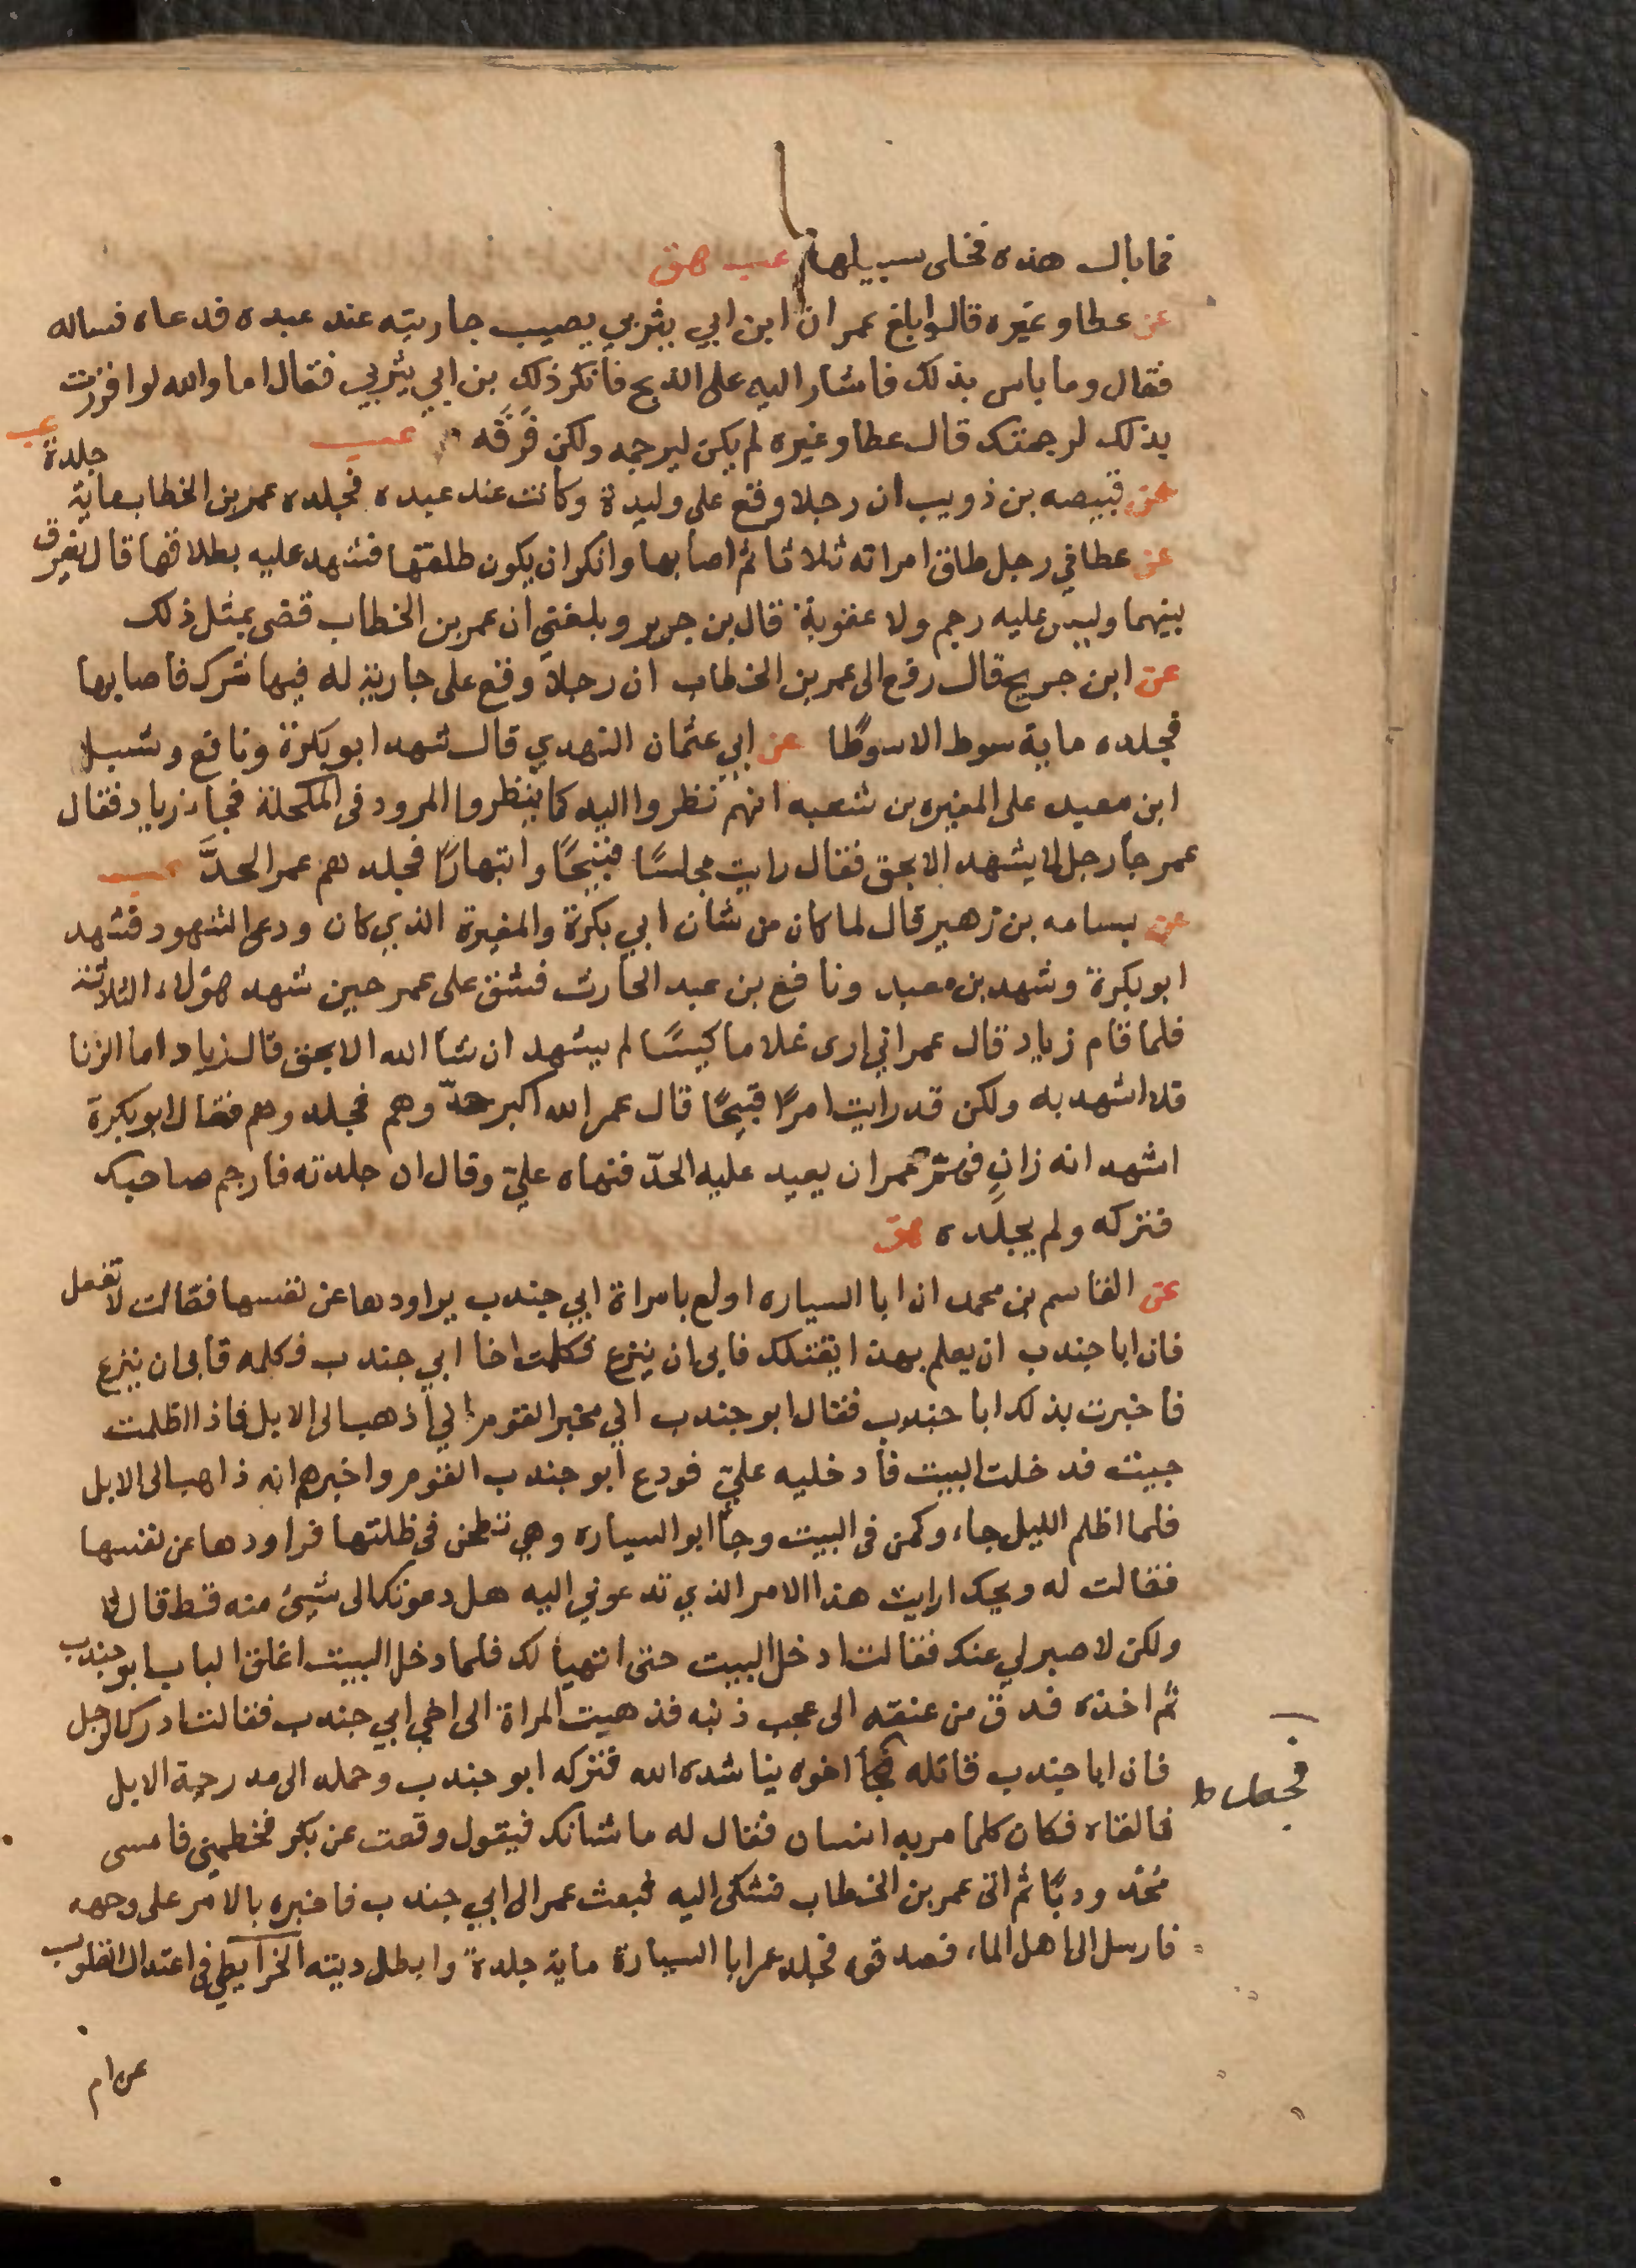 فما بال هذه فخلى سبيلها عب هق
عن عطا وغيره قالوا بلغ عمر ان ابن ابي يثربي يصيب جاريته عند عبده فدعاه فساله
فقال وما باس بذلك فاشار اليه على الذبح فانكر ذلك بن ابي يثربي فقال اما والله لو اقررت
بذلك لرجمتك قال عطا وغيره لم يكن ليرجمه ولكن فَرَّقَه عب
عن قبيصه بن ذويب ان رجلا وقع على وليدة وكانت عند عبده فجلده عمر بن الخطاب ماية جلدة عب
عن عطا في رجل طلق امراته ثلاثا ثم اصابها وانكر ان يكون طلقها فشهد عليه بطلاقها قال يفرق
بينهما وليس عليه رجم ولا عقوبة قال بن جرير وبلغني ان عمر بن الخطاب قضى بمثل ذلك
عن ابن جريج قال رفع الى عمر بن الخطاب ان رجلا وقع على جارية له فيها شرك فاصابها
فجلده ماية سوط الا سوطًا عن ابي عثمان النهدي قال شهد ابو بكرة ونافع وشبل
ابن معبد على المغيره بن شعبه انهم نظروا اليه كما ينظروا المرود في المكحلة فجاء زياد فقال
عمر جأ رجل لا يشهد الا بحق فقال رايت مجلسًا قبيحًا وانتهارًا فجلدهم عمر الحدَّ عب
عن بسامه بن زهير قال لما كان من شان ابي بكرة والمغيرة الذي كان ودعى الشهود فشهد
ابو بكرة وشهد بن معبد ونافع بن عبد الحارث فشق على عمر حين شهد هؤلاء الثلاثة
فلما قام زياد قال عمر اني ارى غلاما كيسًا لم يشهد ان شأ الله الا بحق قال زياد اما الزنا
فلا اشهد به ولكن قد رايت امرًا قبيحًا قال عمر الله اكبر حدّوهم فجلدوهم فقال ابو بكرة
اشهد انه زانٍ فهمّ عمر ان يعيد عليه الحدّ فنهاه عليّ وقال ان جلدته فارجم صاحبك
فتركه ولم يجلده هق
عن القاسم بن محمد ان ابا السياره اولع بامراة ابي جندب يراودها عن نفسها فقالت لا تفعل
فان ابا جندب ان يعلم بهذا يقتلك فابى ان ينزع فكلمت اخا ابي جندب فكلمه فابى ان ينزع
فاخبرت بذلك ابا جندب فقال ابو جندب اني مخبر القوم اني اذهب الى الابل فاذا اظلمت
جيت فدخلت البيت فأدخليه عليّ فودع ابو جندب القوم واخبرهم انه ذاهب الى الابل
فلما اظلم الليل جاء وكمن في البيت وجأ ابو السياره وهي تطحن في ظلتها فراودها عن نفسها
فقالت له ويحك ارايت هذا الامر الذي تدعوني اليه هل دعوتك الى شيئ منه قط قال لا
ولكن لا صبر لي عنك فقالت ادخل البيت حتى اتهيأ لك فلما دخل البيت اغلق الباب ابو جندب
ثم اخذه فدق من عنقه الى عجب ذنبه فذهبت المراة الى اخي ابي جندب فقالت ادرك الرجل
فان ابا جندب قاتله فجأ اخوه يناشده الله فتركه ابو جندب وحمله الى مدرجة الابل
فالقاه فكان كلما مر به انسان فقال له ما شانك فيقول وقعت عن بكر فحطمني فامسى
محدودبًا ثم اتى عمر بن الخطاب فشكى اليه فبعث عمر الى ابي جندب فاخبره بالامر على وجهه
فارسل الى اهل الماء فصدقوه فجلد عمر ابا السيارة ماية جلدة وابطل ديته الخرايطي في اعتدال القلوب
فجعل ط
عن ام